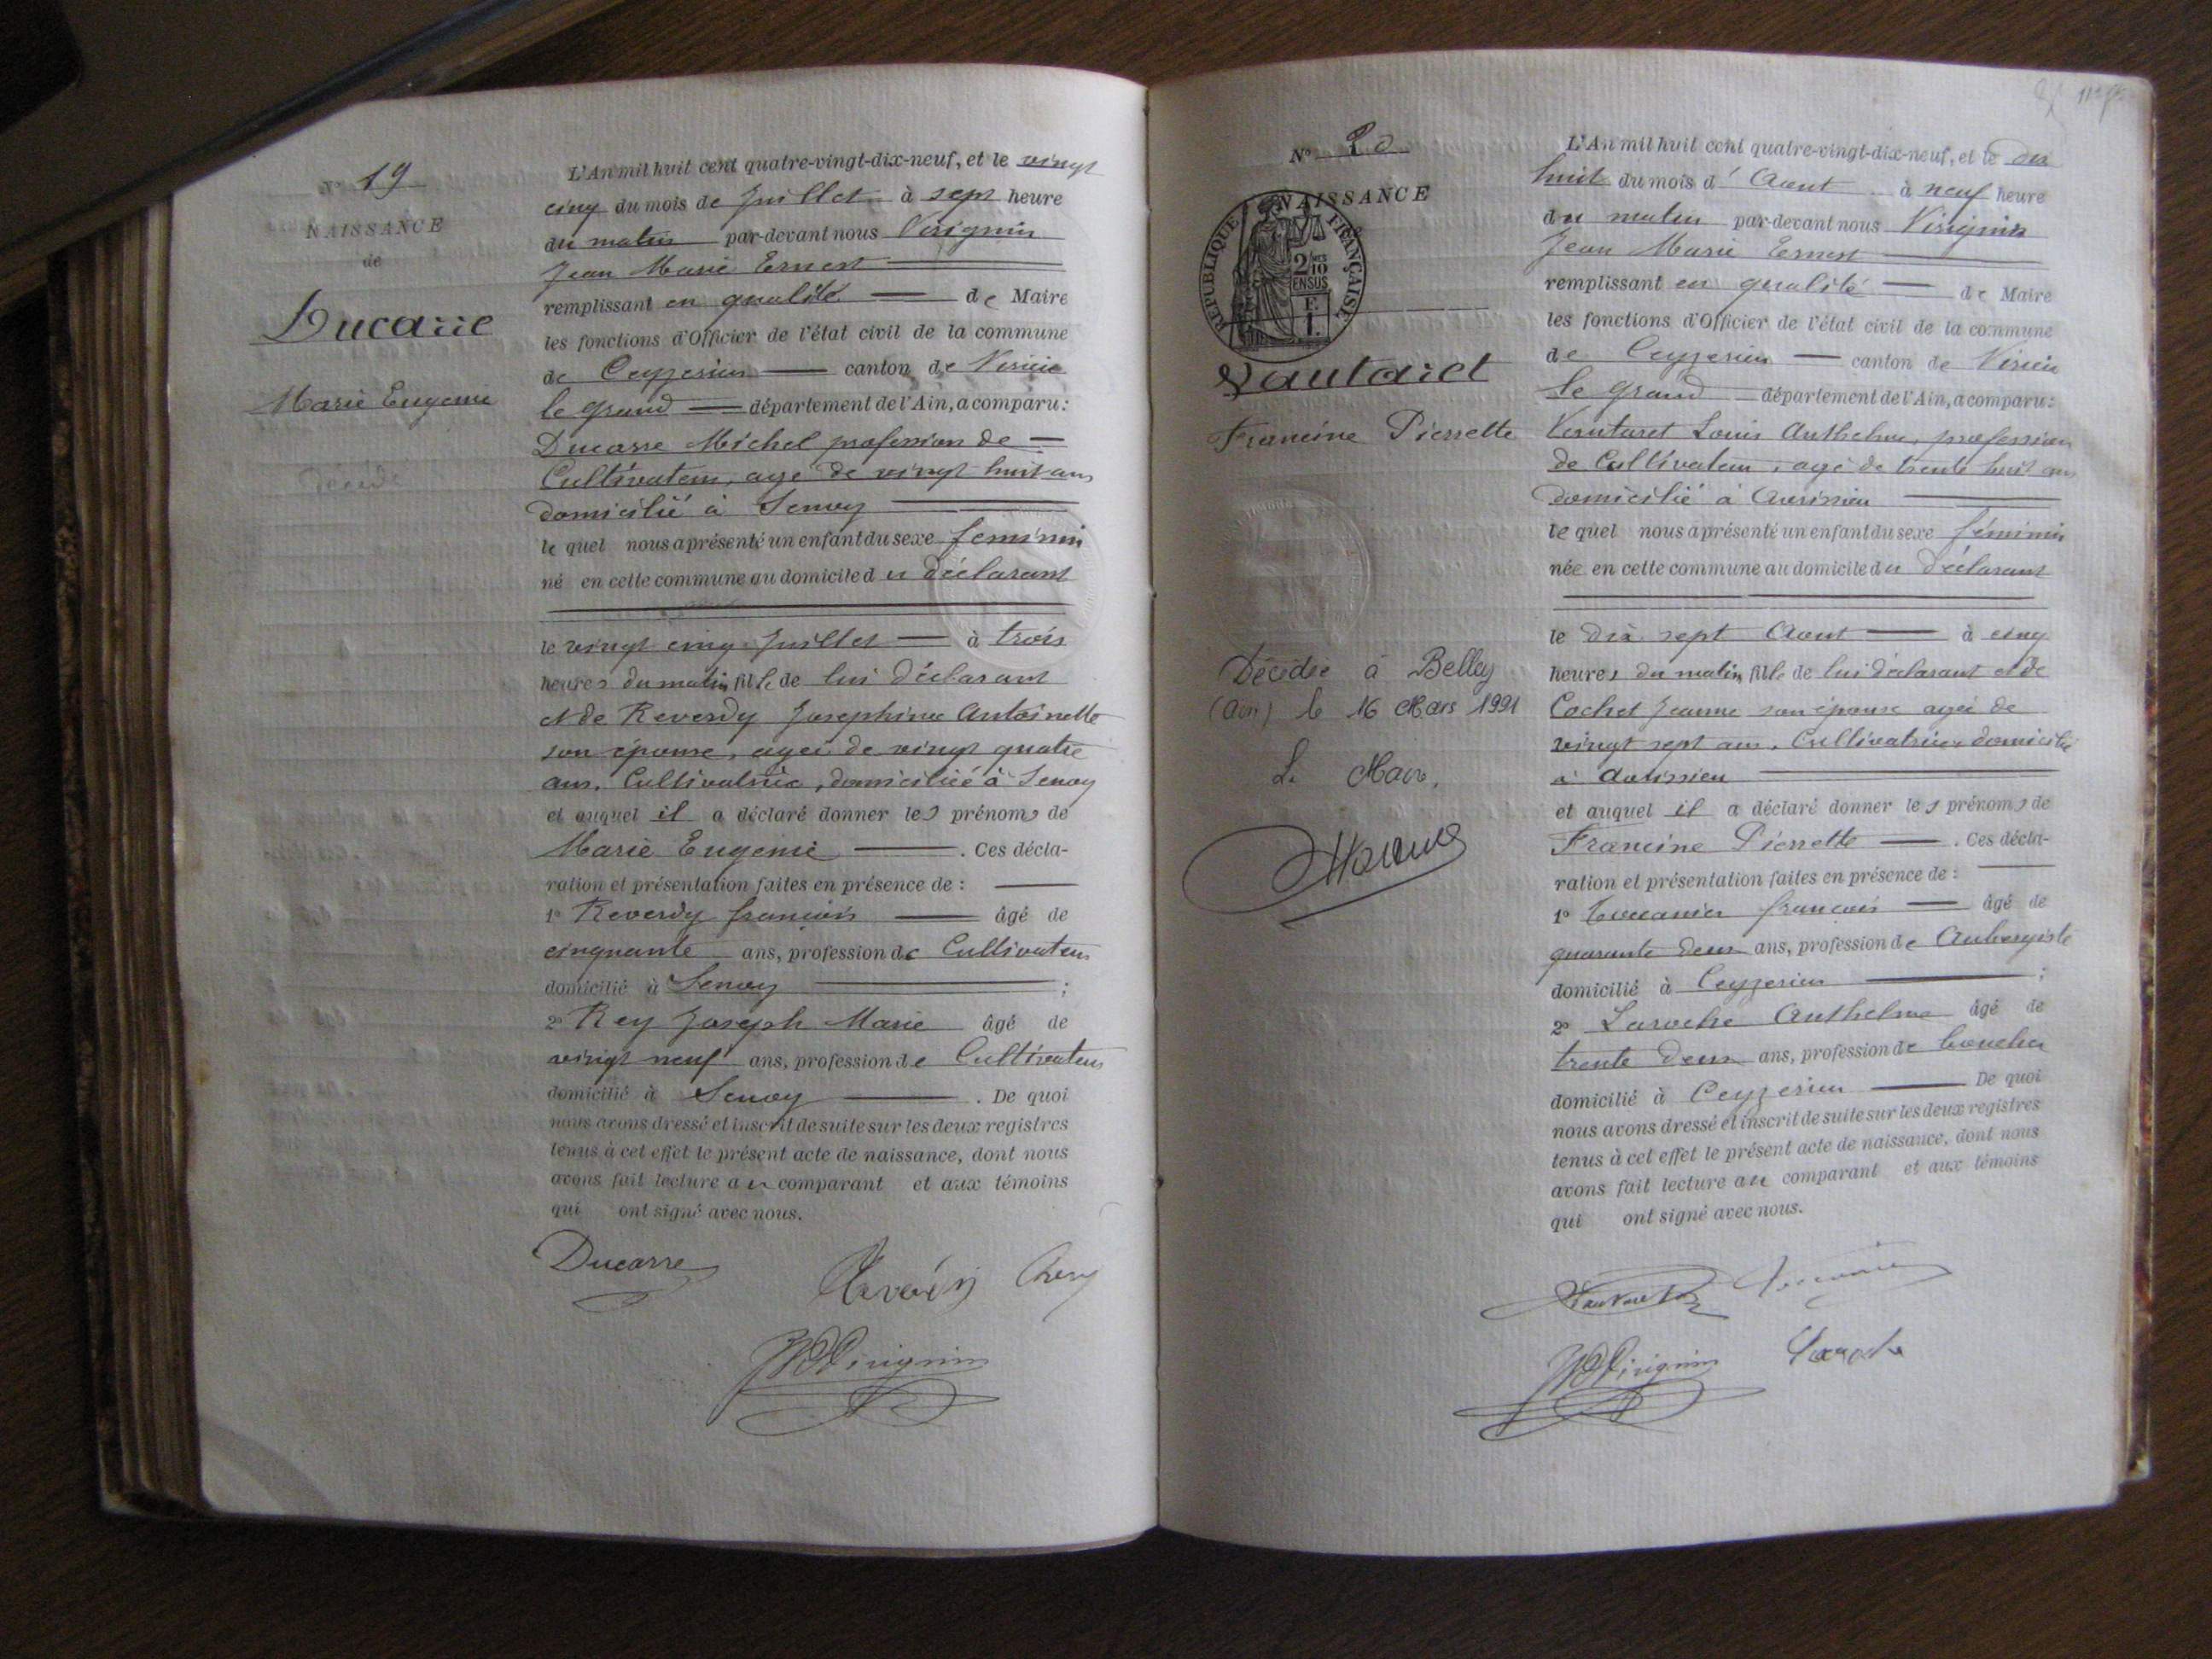 N° 19
NAISSANCE
de
Ducarre
Marie Eugenie
décédé
L'An mil huit cent quatre-vingt-dix-neuf, et le vingt
cinq du mois de Juillet à sept heure
du matin par-devant nous Virignin
Jean Marie Ernest
remplissant en qualité de Maire
les fonctions d'Officier de l'état civil de la commune
de Ceyzerieu canton de Virieu
le grand département de l'Ain, a comparu :
Ducarre Michel profession de
Cultivateur, agé de vingt huit ans
domicilié à Senoy
le quel nous a présenté un enfant du sexe feminin
né en cette commune au domicile du déclarant
le vingt cinq Juillet à trois
heures du matin fille de lui déclarant
et de Reverdy Josephine Antoinette
son épouse, agée de vingt quatre
ans, Cultivatrice, domiciliée à Senoy
et auquel il a déclaré donner les prénoms de
Marie Eugenie . Ces décla-
ration et présentation faites en présence de :
1° Reverdy francois âgé de
cinquante ans, profession de Cultivateur
domicilié à Senoy ;
2° Rey Joseph Marie âgé de
vingt neuf ans, profession de Cultivateur
domicilié à Senoy . De quoi
nous avons dressé et inscrit de suite sur les deux registres
tenus à cet effet le présent acte de naissance, dont nous
avons fait lecture au comparant et aux témoins
qui ont signé avec nous.
Ducarre
Reverdy
Virignin
N° 20
NAISSANCE
REPUBLIQUE FRANÇAISE
2/10 EN SUS
Vautaret
Francine Pierrette
Décédée à Belley
(Ain) le 16 Mars 1991
Le Maire,
L'An mil huit cent quatre-vingt-dix-neuf, et le dix
huit du mois d' Aout à neuf heure
du matin par-devant nous Virignin
Jean Marie Ernest
remplissant en qualité de Maire
les fonctions d'Officier de l'état civil de la commune
de Ceyzerieu canton de Virieu
le grand département de l'Ain, a comparu :
Vautaret Louis Anthelme, profession
de Cultivateur, agé de trente huit ans
domicilié à Avrissieu
le quel nous a présenté un enfant du sexe féminin
née en cette commune au domicile du déclarant
le dix sept Aout à cinq
heures du matin fille de lui déclarant et de
Cochet Jeanne son épouse agée de
vingt sept ans, Cultivatrice domicilié
à Avrissieu
et auquel il a déclaré donner les prénoms de
Francine Pierrette . Ces décla-
ration et présentation faites en présence de :
1° francois âgé de
quarante deux ans, profession de Aubergiste
domicilié à Ceyzerieu ;
2° Laroche Anthelme âgé de
trente deux ans, profession de boucher
domicilié à Ceyzerieu De quoi
nous avons dressé et inscrit de suite sur les deux registres
tenus à cet effet le présent acte de naissance, dont nous
avons fait lecture au comparant et aux témoins
qui ont signé avec nous.
Vautaret
Virignin
Laroche